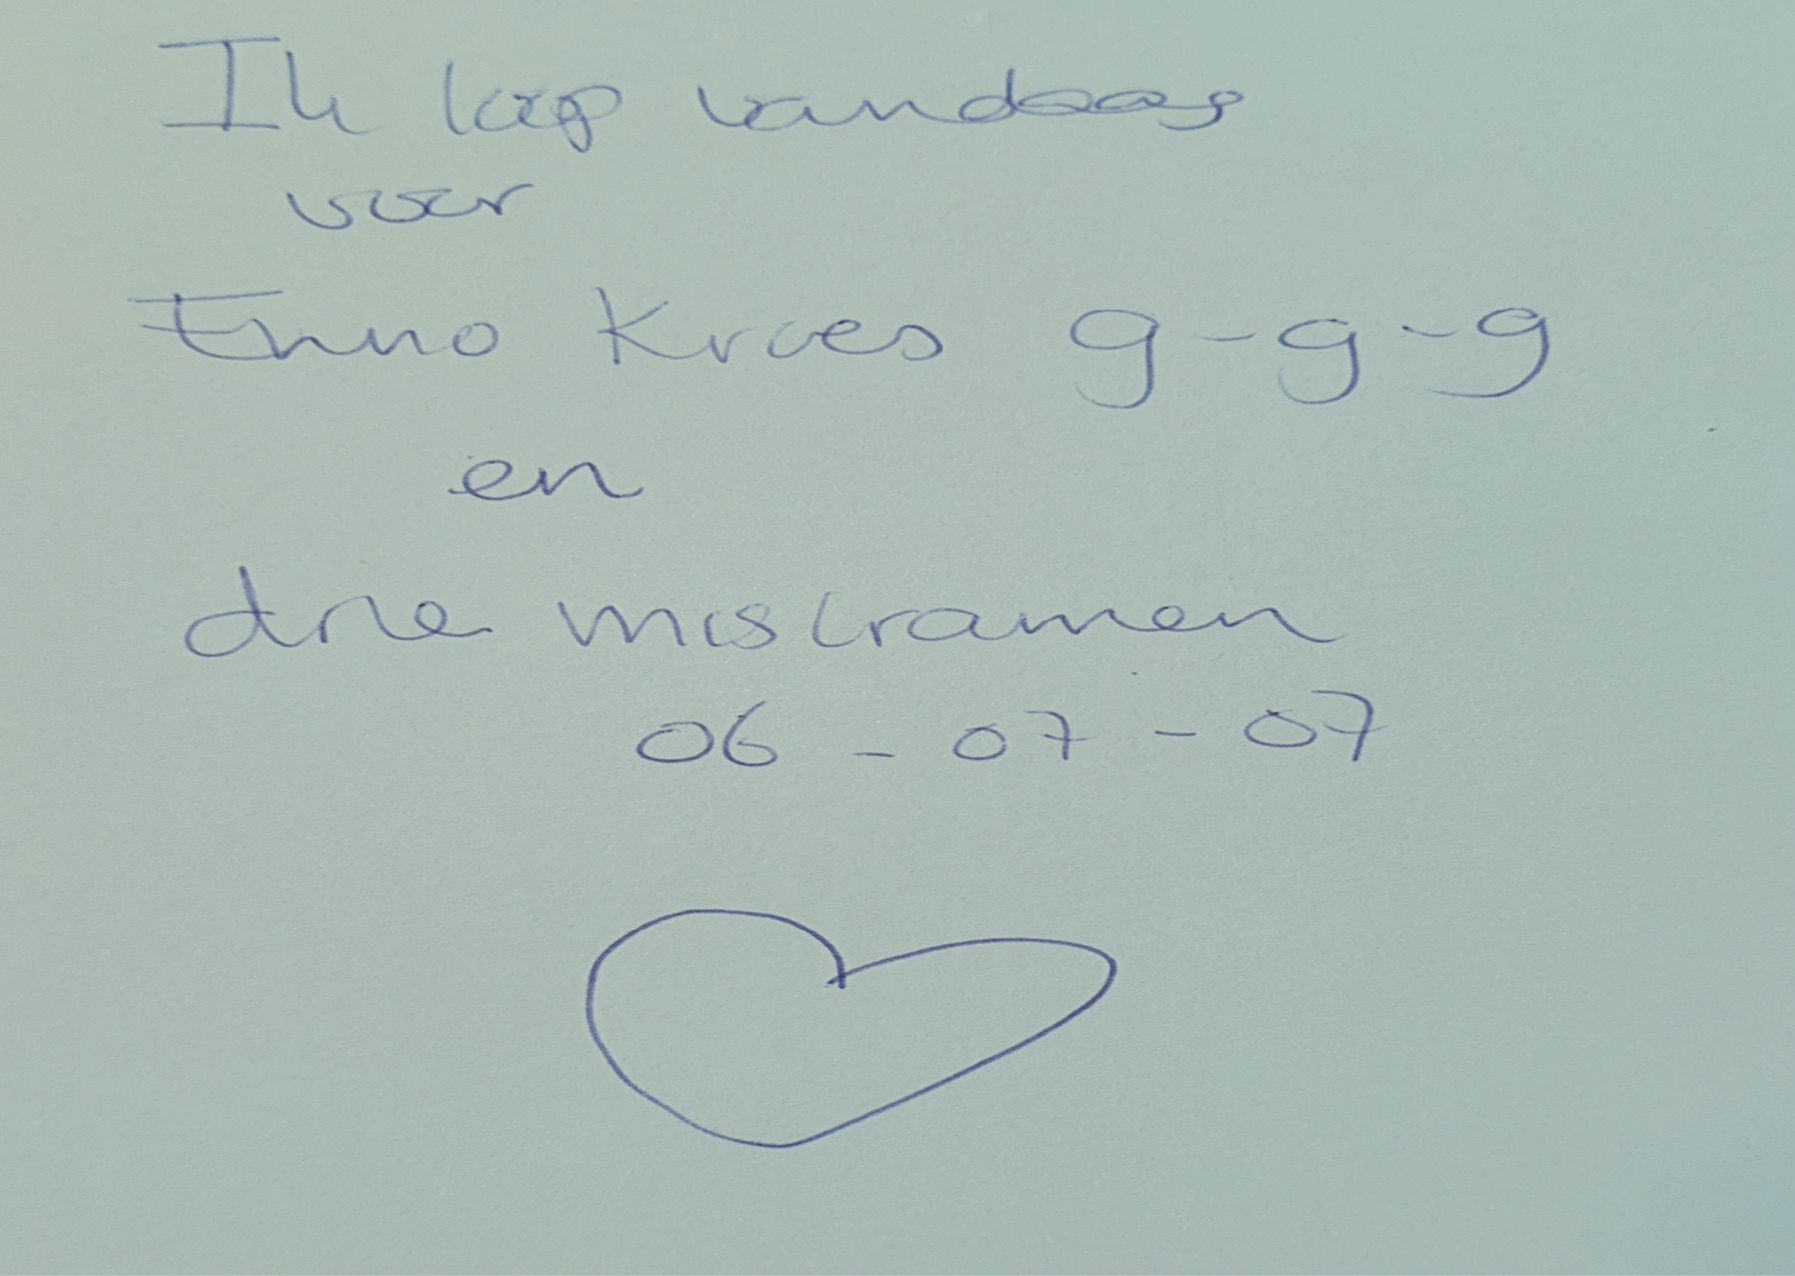 Ik loop vandaag
voor
Enno Kroes g-g-g
en
drie miskramen
06 - 07 - 07